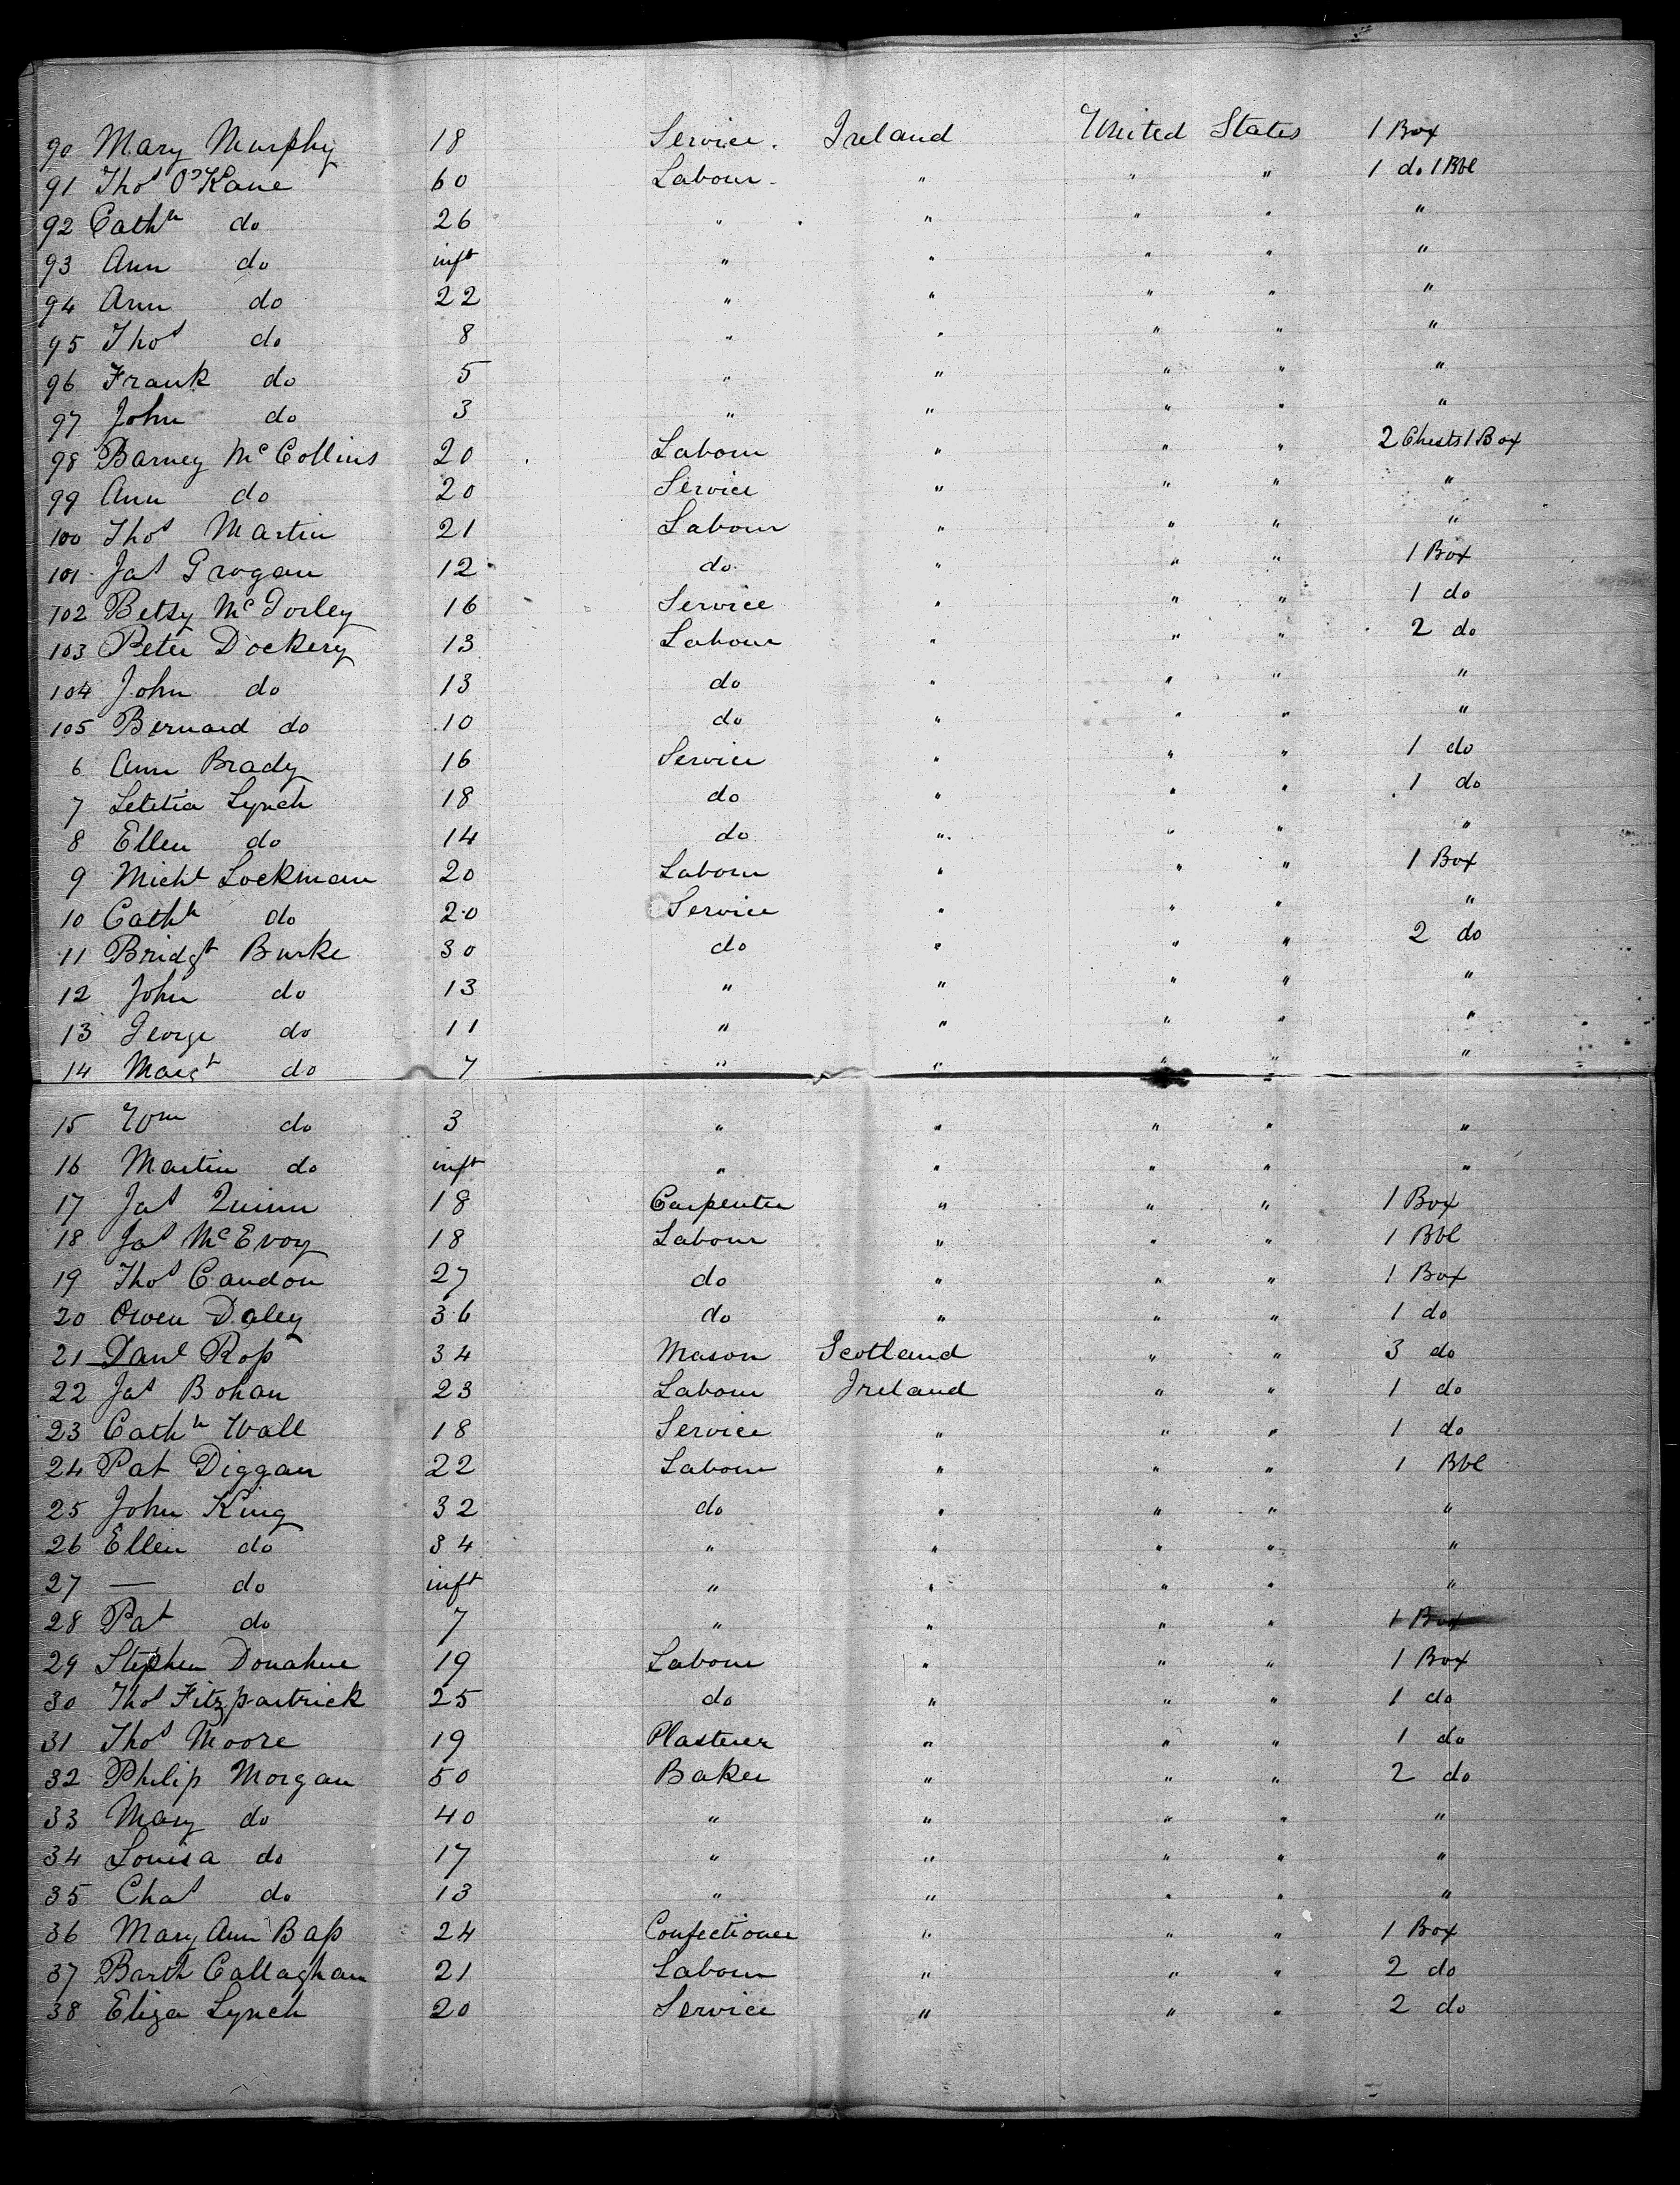 90 Mary Murphy 18 Service. Ireland United States 1 Box
91 Thos O'Kane 60 Labour " " " 1 do 1 Bbl
92 Cathn do 26 " " " " "
93 Ann do inft " " " " "
94 Ann do 22 " " " " "
95 Thos do 8 " " " " "
96 Frank do 5 " " " " "
97 John do 3 " " " " "
98 Barney McCollins 20 Labour " " " 2 Chests 1 Box
99 Ann do 20 Service " " " "
100 Thos Martin 21 Labour " " " "
101 Jas Grogan 12 do " " " 1 Box
102 Betsy McTorley 16 Service " " " 1 do
103 Peter Dockery 13 Labour " " " 2 do
104 John do 13 do " " " "
105 Bernard do 10 do " " " "
6 Ann Brady 16 Service " " " 1 do
7 Letetia Lynch 18 do " " " 1 do
8 Ellen do 14 do " " " "
9 Michl Lockman 20 Labour " " " 1 Box
10 Cathn do 20 Service " " " "
11 Bridgt Burke 30 do " " " 2 do
12 John do 13 " " " " "
13 George do 11 " " " " "
14 Margt do 7 " " " " "
15 Wm do 3 " " " " "
16 Martin do inft " " " " "
17 Jas Quinn 18 Carpenter " " " 1 Box
18 Jas McEvoy 18 Labour " " " 1 Bbl
19 Thos Candon 27 do " " " 1 Box
20 Owen Daley 36 do " " " 1 do
21 Danl Ross 34 Mason Scotland " " 3 do
22 Jas Bohan 23 Labour Ireland " " 1 do
23 Cathn Wall 18 Service " " " 1 do
24 Pat Diggan 22 Labour " " " 1 Bbl
25 John King 32 do " " " "
26 Ellen do 34 " " " " "
27 — do inft " " " " "
28 Pat do 7 " " " " 1 Box
29 Stephen Donahue 19 Labour " " " 1 Box
30 Thos Fitzpartrick 25 do " " " 1 do
31 Thos Moore 19 Plasterer " " " 1 do
32 Philip Morgan 50 Baker " " " 2 do
33 Mary do 40 " " " " "
34 Louisa do 17 " " " " "
35 Chas do 13 " " " " "
36 Mary Ann Bass 24 Confectioner " " " 1 Box
37 Barth Callaghan 21 Labour " " " 2 do
38 Eliza Lynch 20 Service " " " 2 do